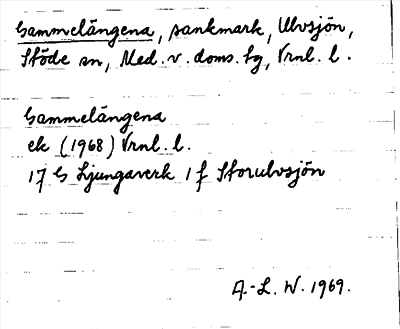 Gammelängena, sankmark, Ulvsjön,
Stöde sn, Med. v. doms. tg, Vrnl. l.
Gammelängena
ek (1968) Vrnl. l.
17 G Ljungaverk 1 f Storulvsjön
A.-L. W. 1969.